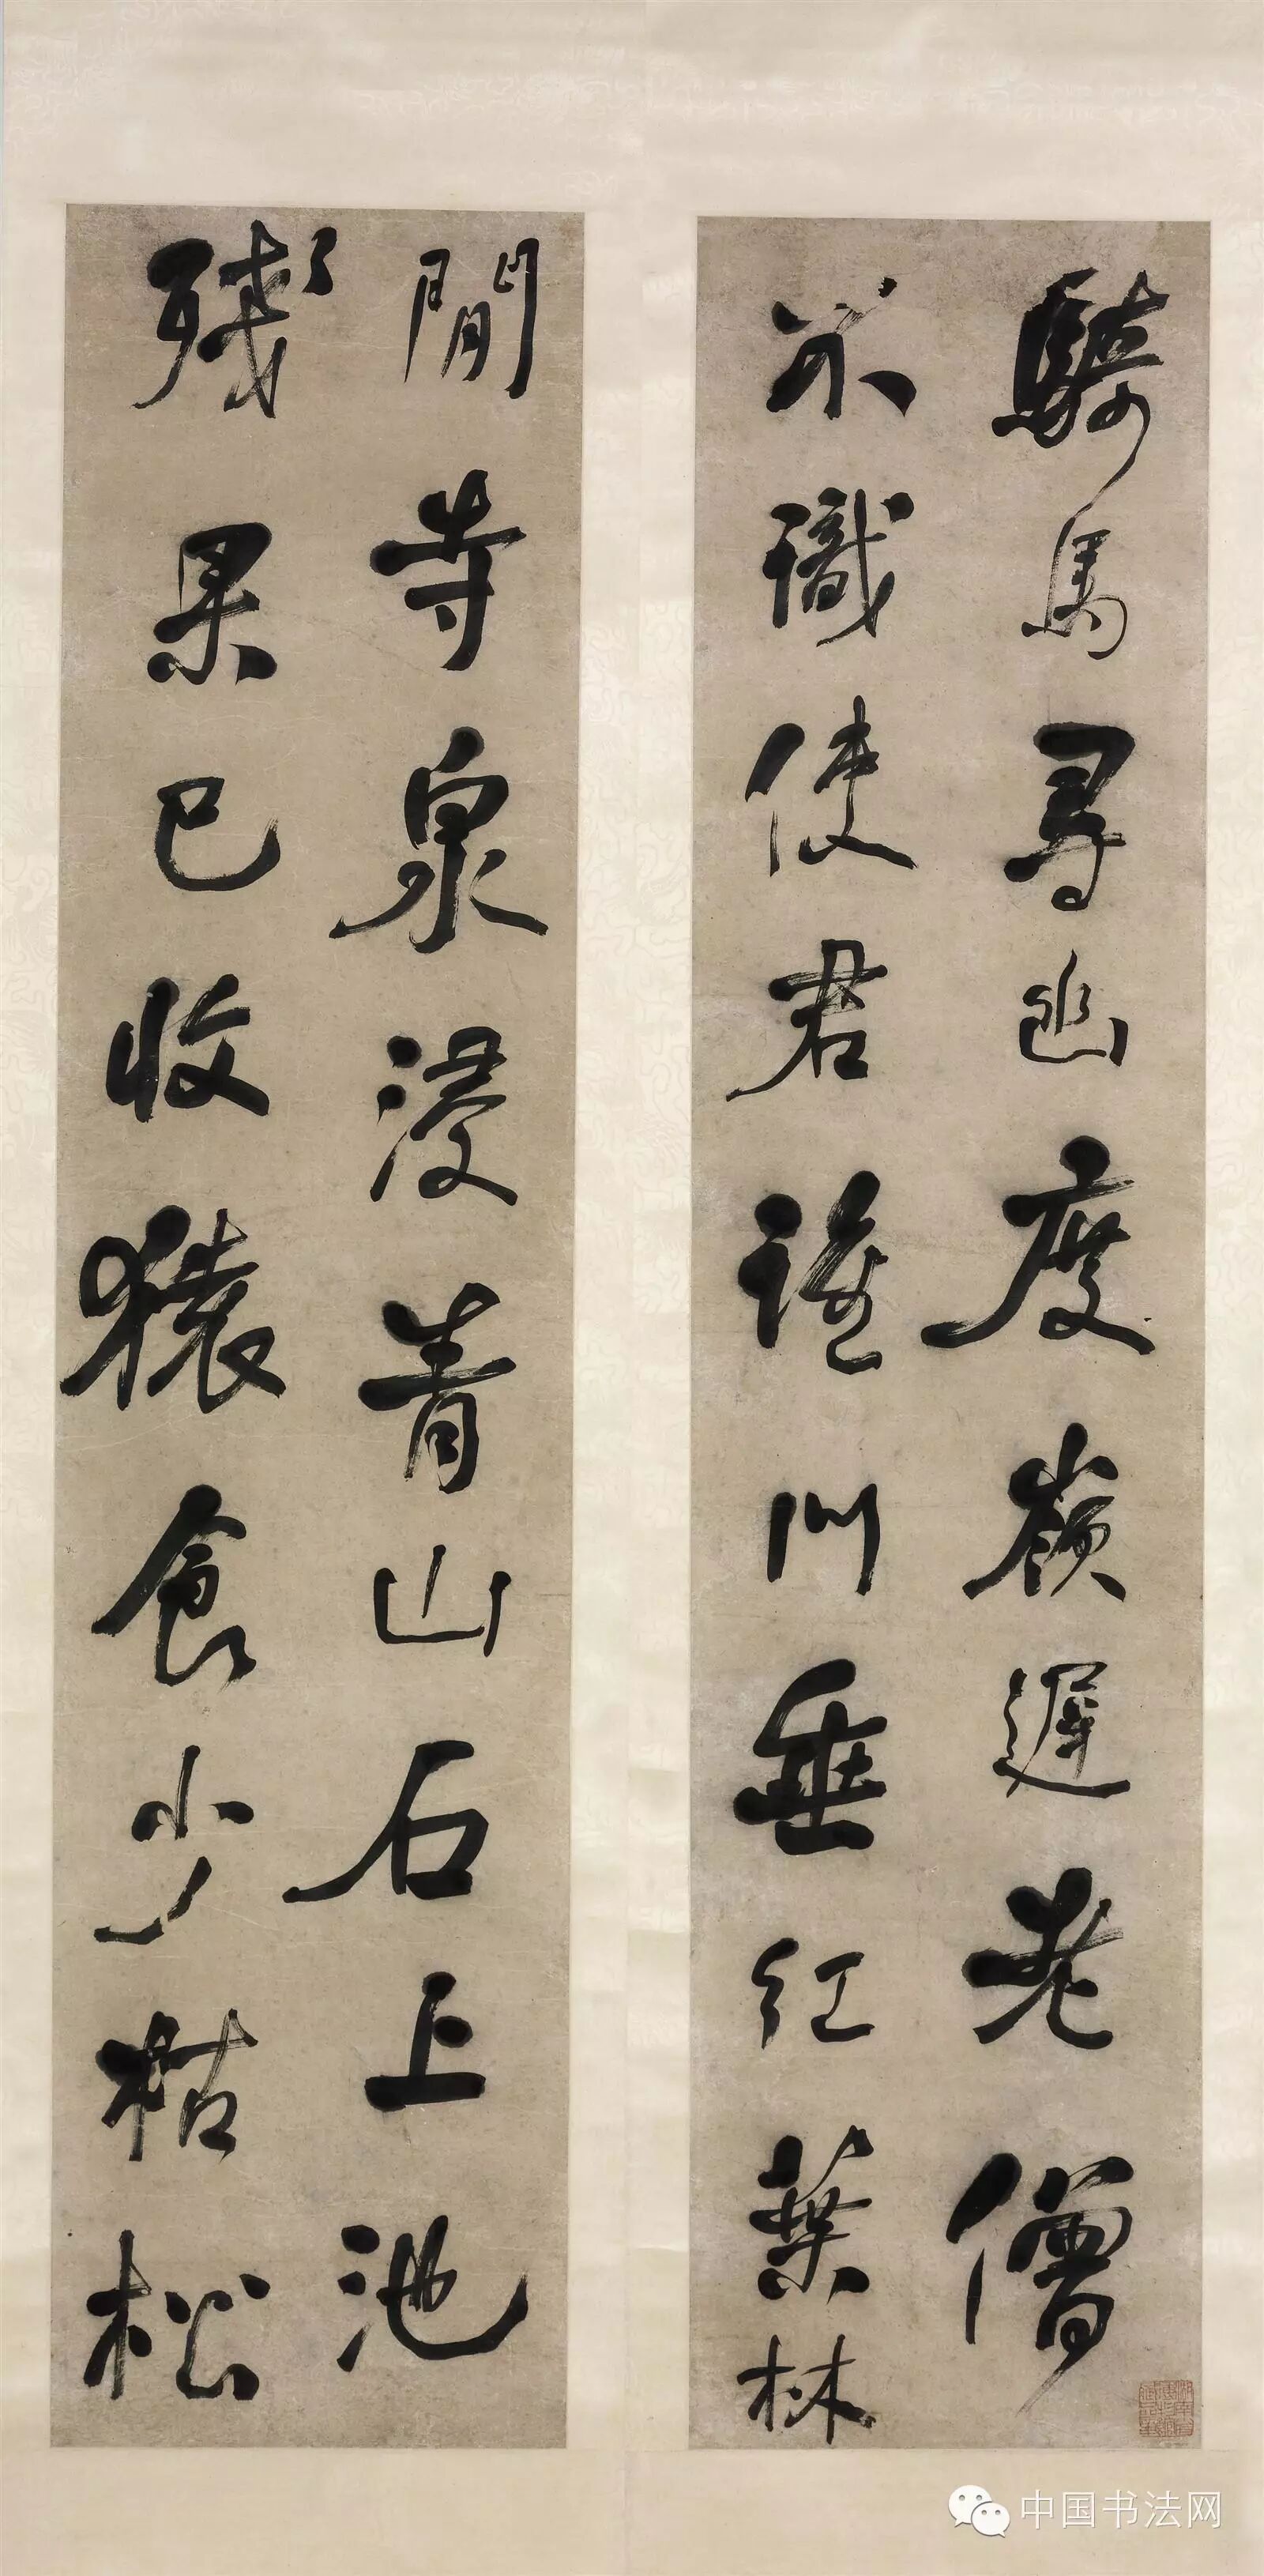 騎馬尋幽度嶺遲老僧
不識使君誰門垂紅葉林
閒寺泉浸青山石上池
殘果已收猿食少枯松
中国书法网